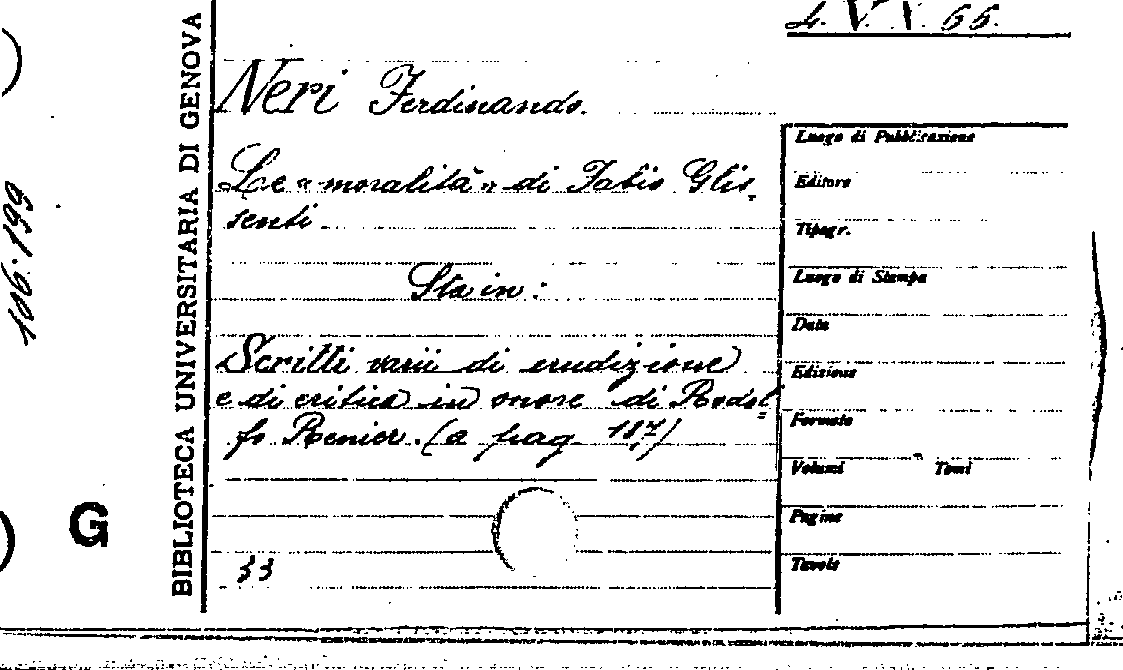 4. V. V. 66.
BIBLIOTECA UNIVERSITARIA DI GENOVA
Neri Ferdinando.
Le «moralità» di Fabio Glis-
senti
Sta in:
Scritti varii di erudizione
e di critica in onore di Rodol=
fo Renier. (a pag. 187)
33
Luogo di Pubblicazione
Editore
Tipogr.
Luogo di Stampa
Data
Edizione
Formato
Volumi Tomi
Pagine
Tavole
106.199
G